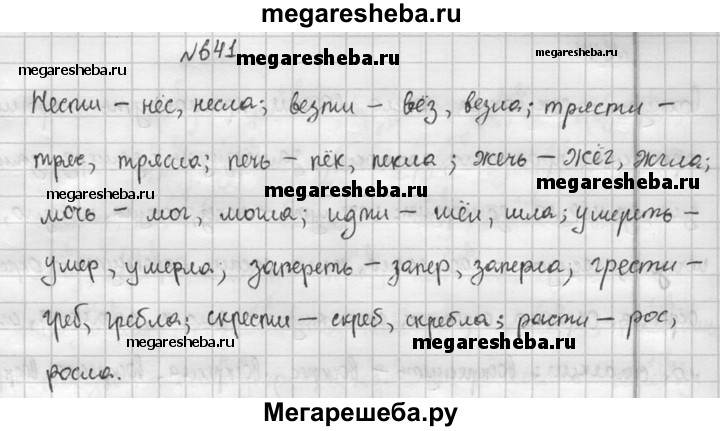 megaresheba.ru
№641
megaresheba.ru
megaresheba.ru
megaresheba.ru
Нести – нёс, несла; везти – вёз, везла; трясти –
тряс, трясла; печь – пёк, пекла; жечь – жёг, жгла;
megaresheba.ru
megaresheba.ru
мочь – мог, могла; идти – шёл, шла; умереть –
умер, умерла; запереть – запер, заперла; грести –
греб, гребла; скрести – скреб, скребла; расти – рос,
megaresheba.ru
megaresheba.ru
росла.
Мегарешеба.ру